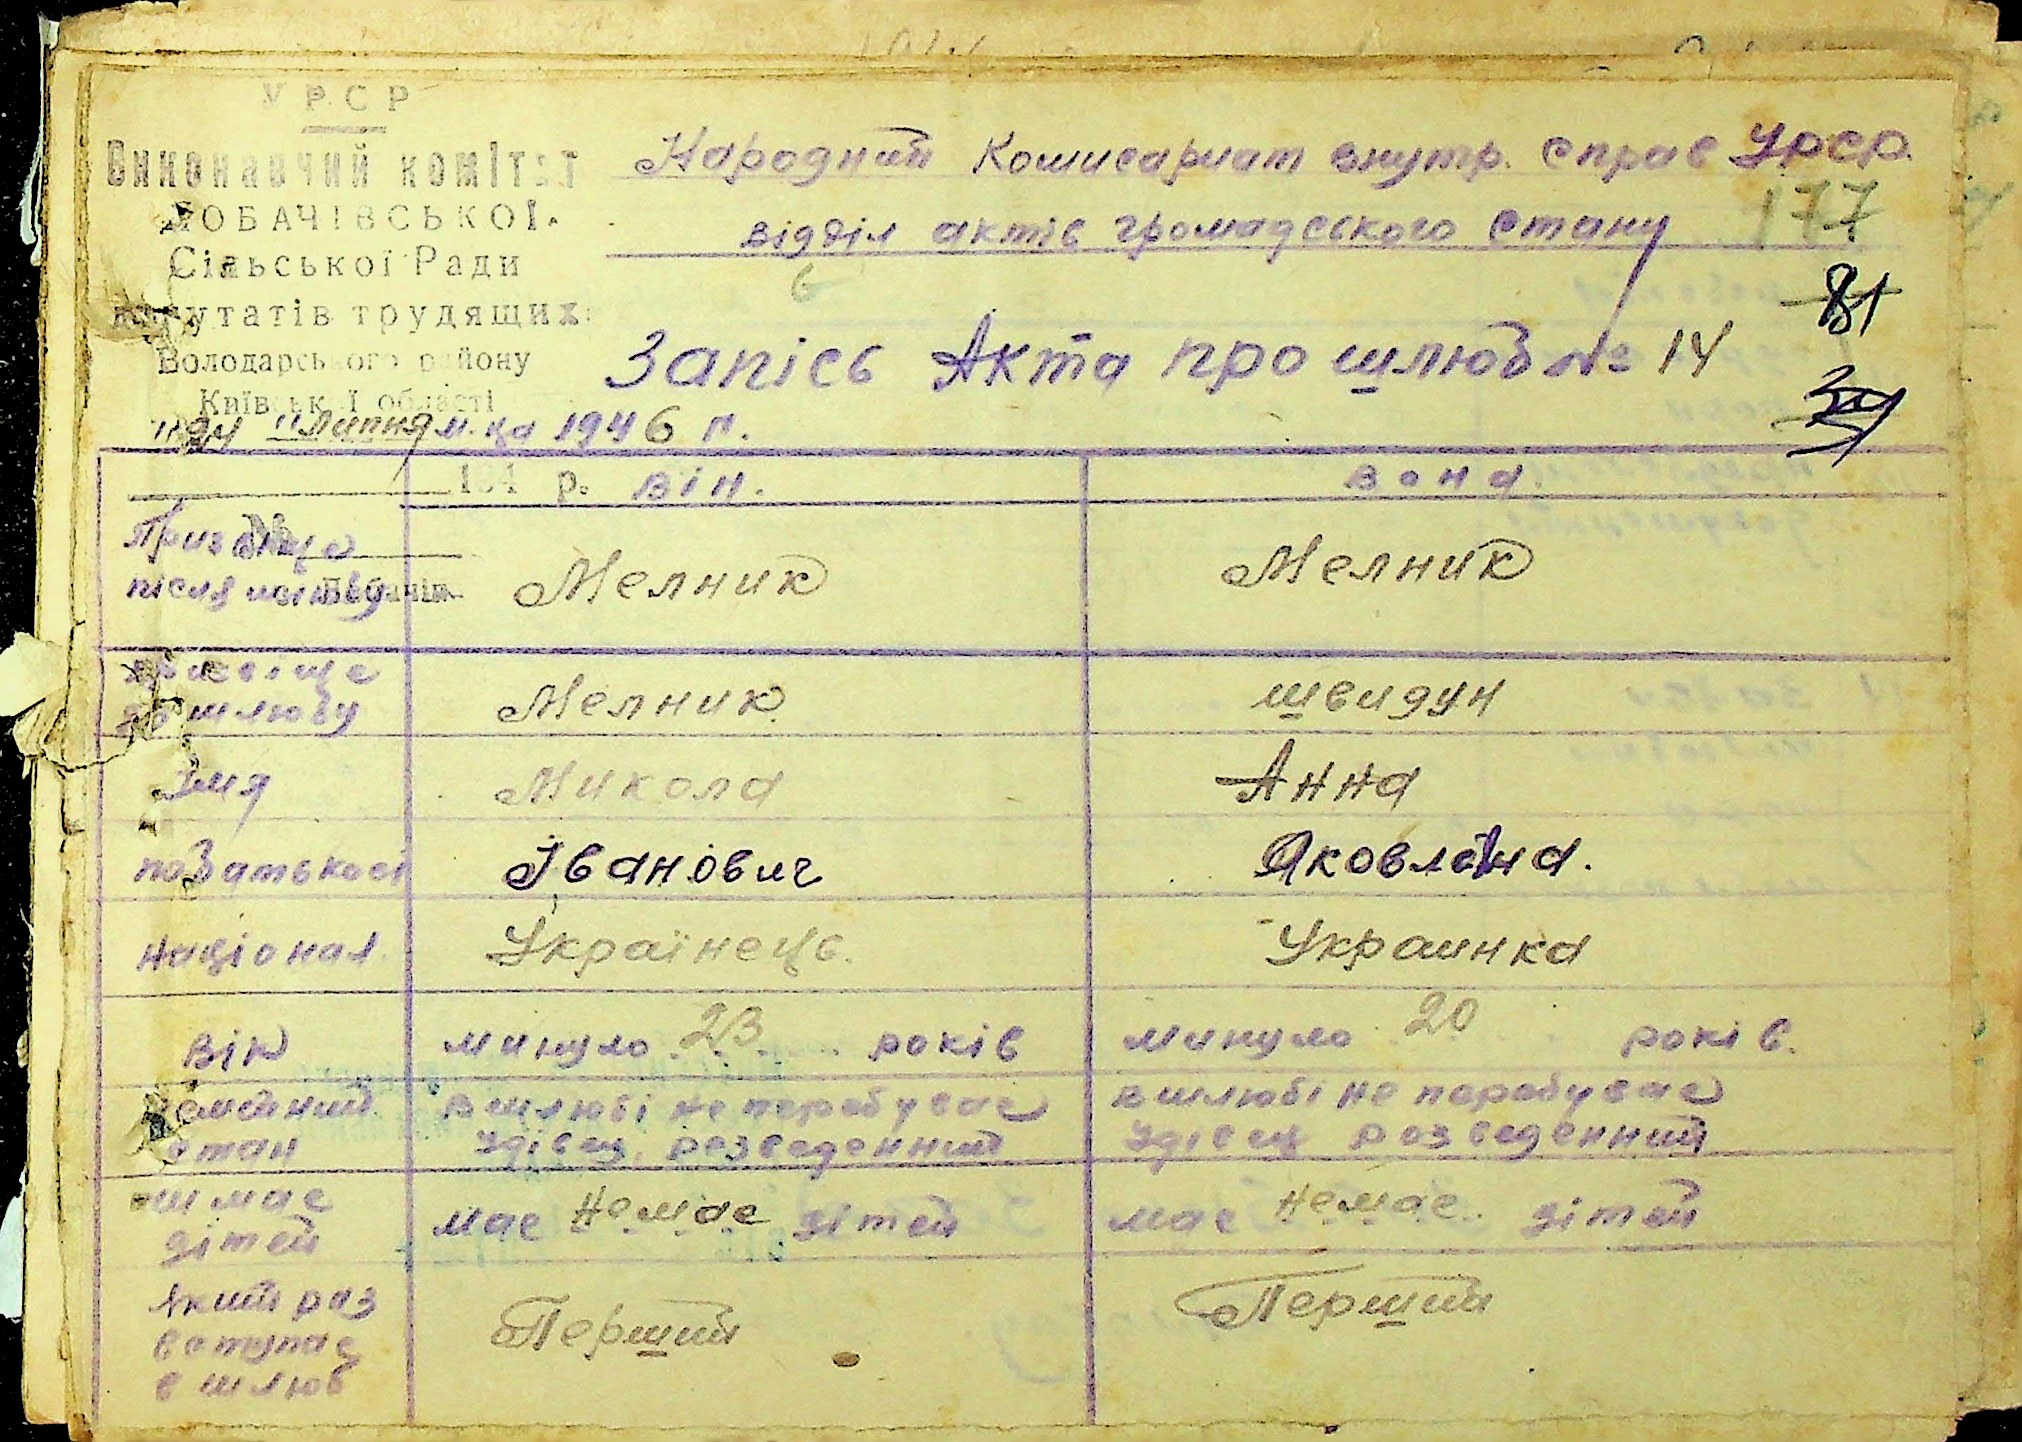 УРСР
Виконавчий комітет
ЛОБАЧІВСЬКОЇ
Сільської Ради
депутатів трудящих
Володарського району
Київської області
Народний Комисариат внутр. справ УРСР.
177
відділ актів громадського стану
81
Запісь Акта про шлюб № 14
"24" Липня м-ця 1946 р.
194 р. він. вона.
Призвище
після шлюбу Мелник Мелник
призвіще
до шлюбу Мелник Швидун
Імя Микола Анна
по Батькові Іванович Яковлевна.
націонал. Українець. Украинка
вік минуло 23 років минуло 20 років.
семейний в шлюбі не перебувае в шлюбі не перебувае
стан удівец, розведенний удівец розведенний
чи мае
дітей мае немае дітей мае немае дітей
Який раз
вступає
в шлюб Перший Перший